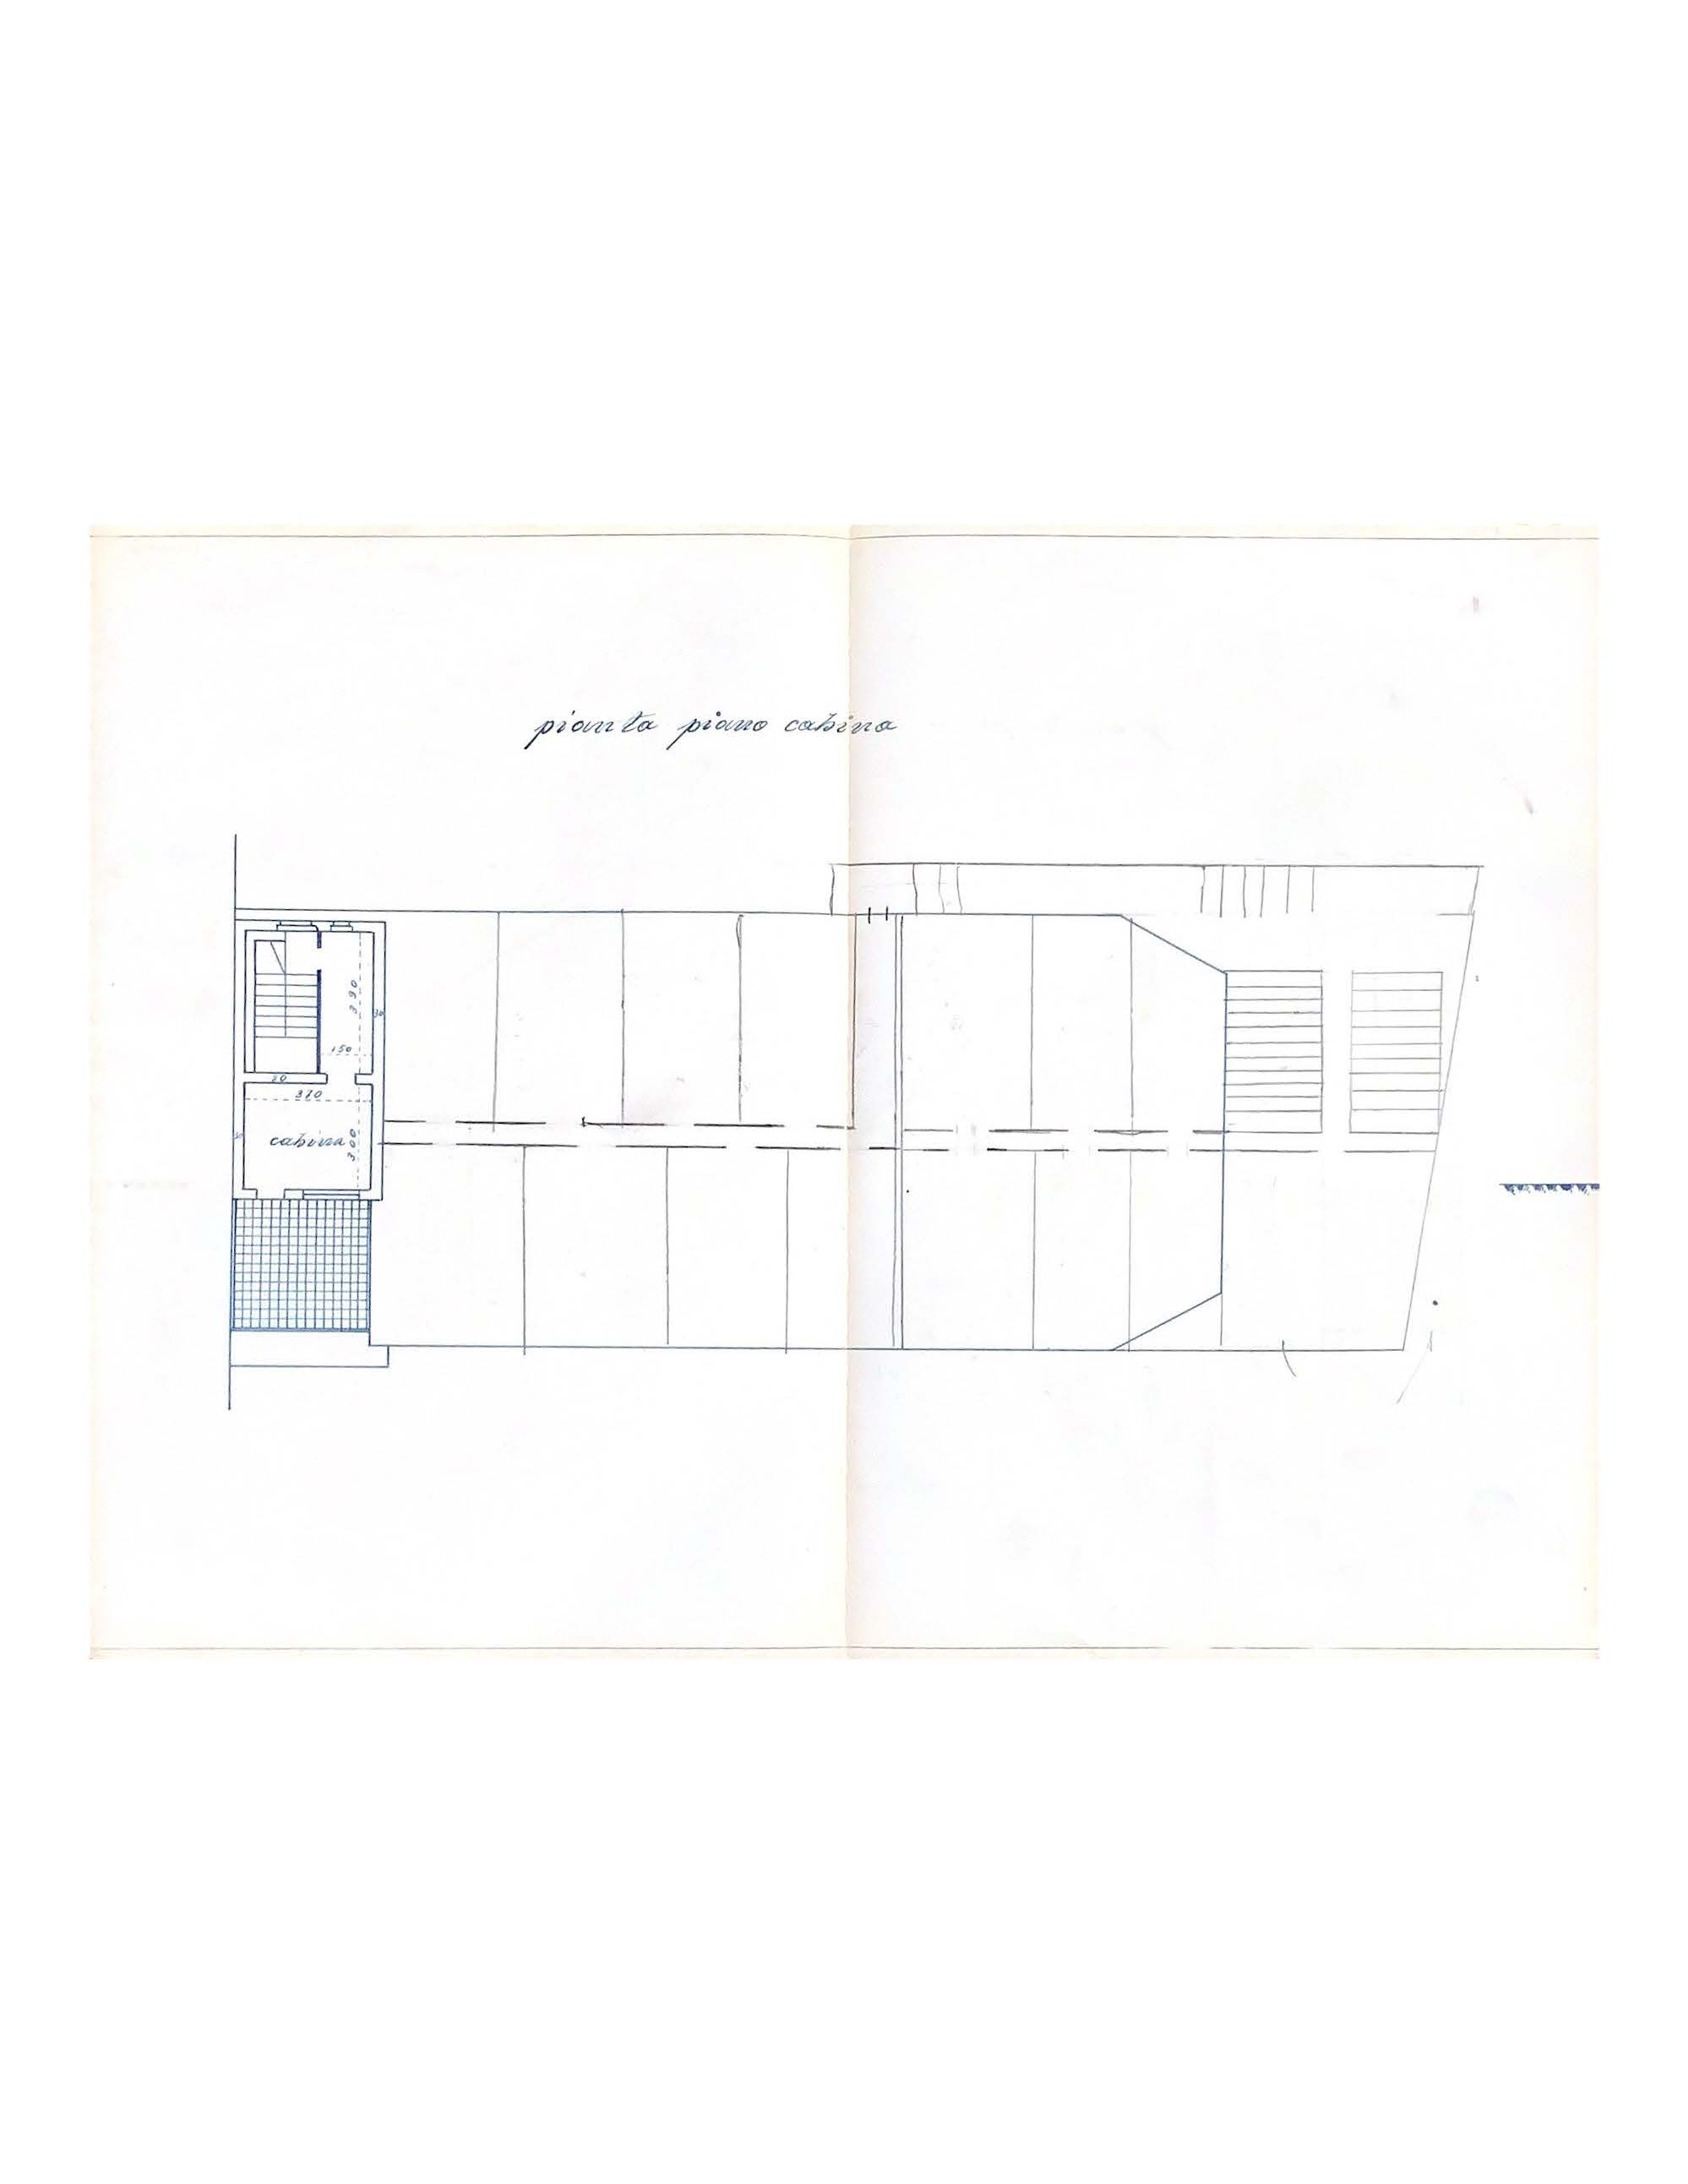 pianta piano cabina
390
30
150
20
370
30
cabina
300